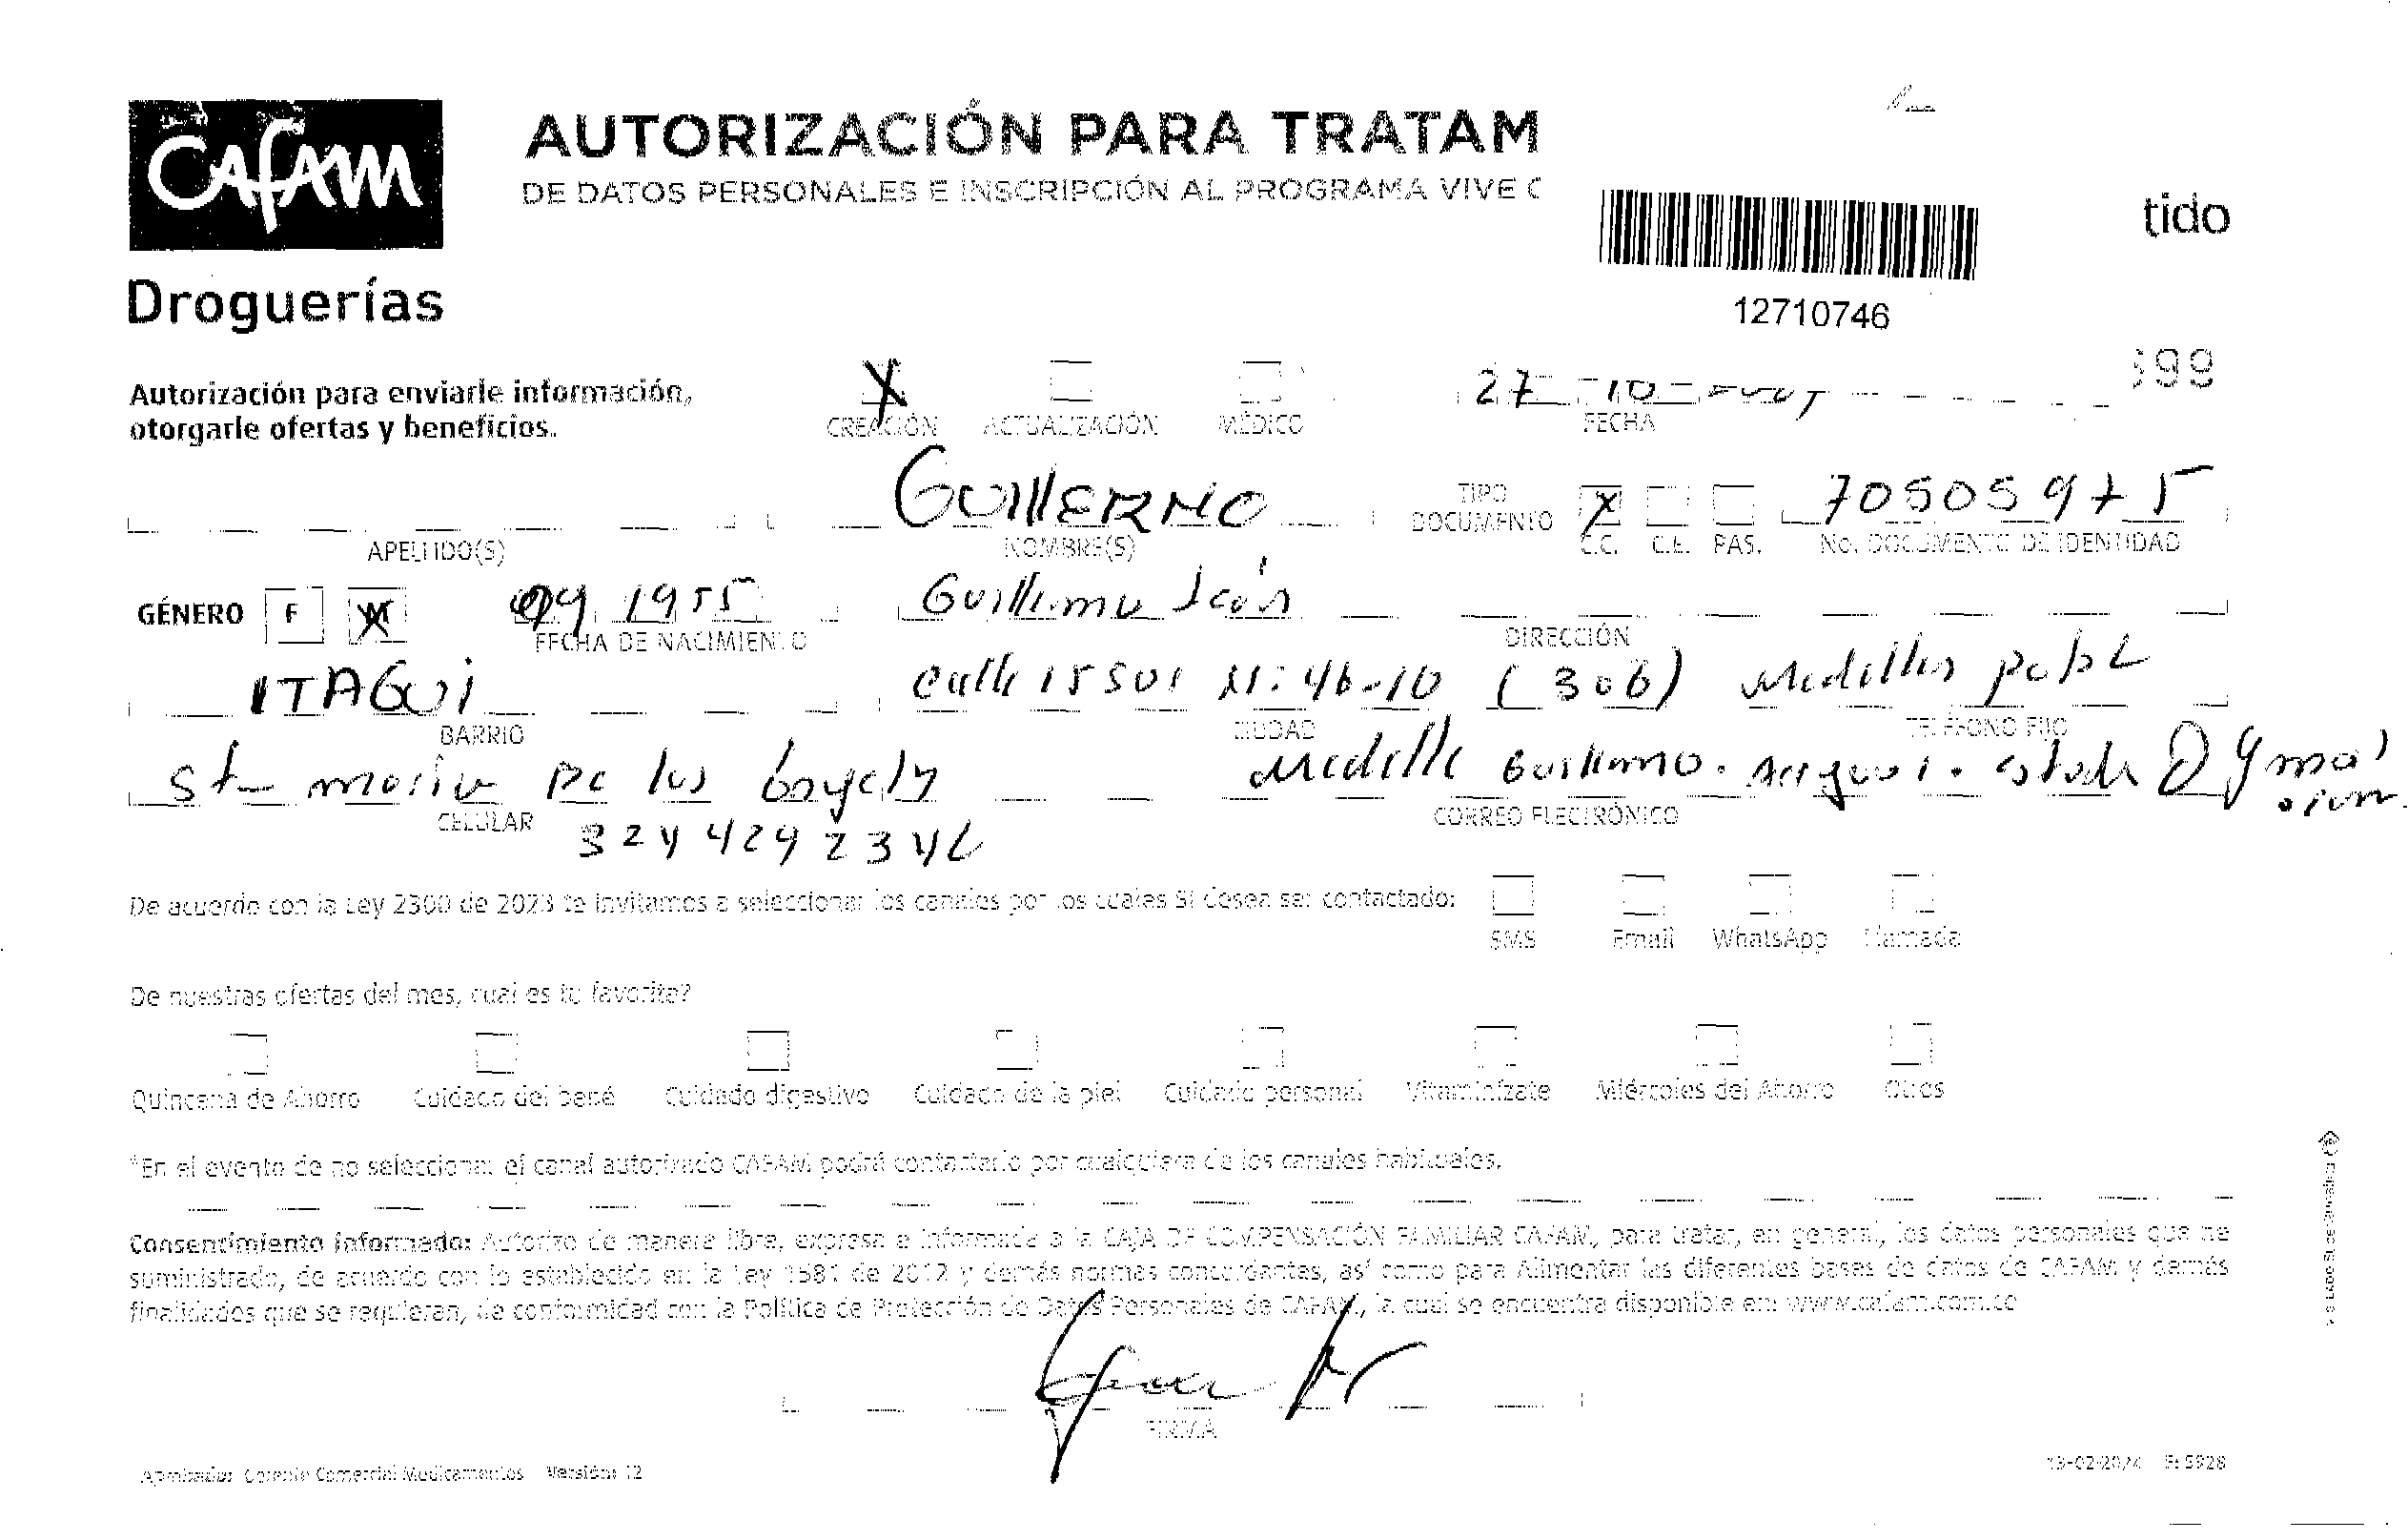 CAfAM
AUTORIZACIÓN PARA TRATAM
DE DATOS PERSONALES E INSCRIPCIÓN AL PROGRAMA VIVE C
tido
Droguerías
12710746
Autorización para enviarle información,
otorgarle ofertas y beneficios.
X
CREACIÓN ACTUALIZACIÓN MÉDICO
27-10-
FECHA
99
GUILLERMO
TIPO
DOCUMENTO
X
C.C. C.E. PAS.
70505975
APELLIDO(S) NOMBRE(S) No. DOCUMENTO DE IDENTIDAD
GÉNERO F M X
09 1955
FECHA DE NACIMIENTO
Guillermo
DIRECCIÓN
ITAGUI
calle 15 sur N: 46-10 (306) Medellin pobl
BARRIO CIUDAD TELÉFONO FIJO
Sta maria De los
CELULAR
Medelli Guillermo.
CORREO ELECTRÓNICO
De acuerdo con la Ley 2300 de 2023 te invitamos a seleccionar los canales por los cuales SI desea ser contactado:
SMS Email WhatsApp Llamada
De nuestras ofertas del mes, cual es tu favorita?
Quincena de Ahorro Cuidado del bebé Cuidado digestivo Cuidado de la piel Cuidado personal Vitamínizate Miércoles del Ahorro Otros
*En el evento de no seleccionar el canal autorizado CAFAM podrá contactarlo por cualquiera de los canales habituales.
Consentimiento informado: Autorizo de manera libre, expresa e informada a la CAJA DE COMPENSACIÓN FAMILIAR CAFAM, para tratar, en general, los datos personales que he
suministrado, de acuerdo con lo establecido en la Ley 1581 de 2012 y demás normas concordantes, así como para Alimentar las diferentes bases de datos de CAFAM y demás
finalidades que se requieran, de conformidad con la Política de Protección de Datos Personales de CAFAM, la cual se encuentra disponible en: www.cafam.com.co
FIRMA
Aprobador Gerente Comercial Medicamentos Versión: 12
13-02-2024 F: 5828